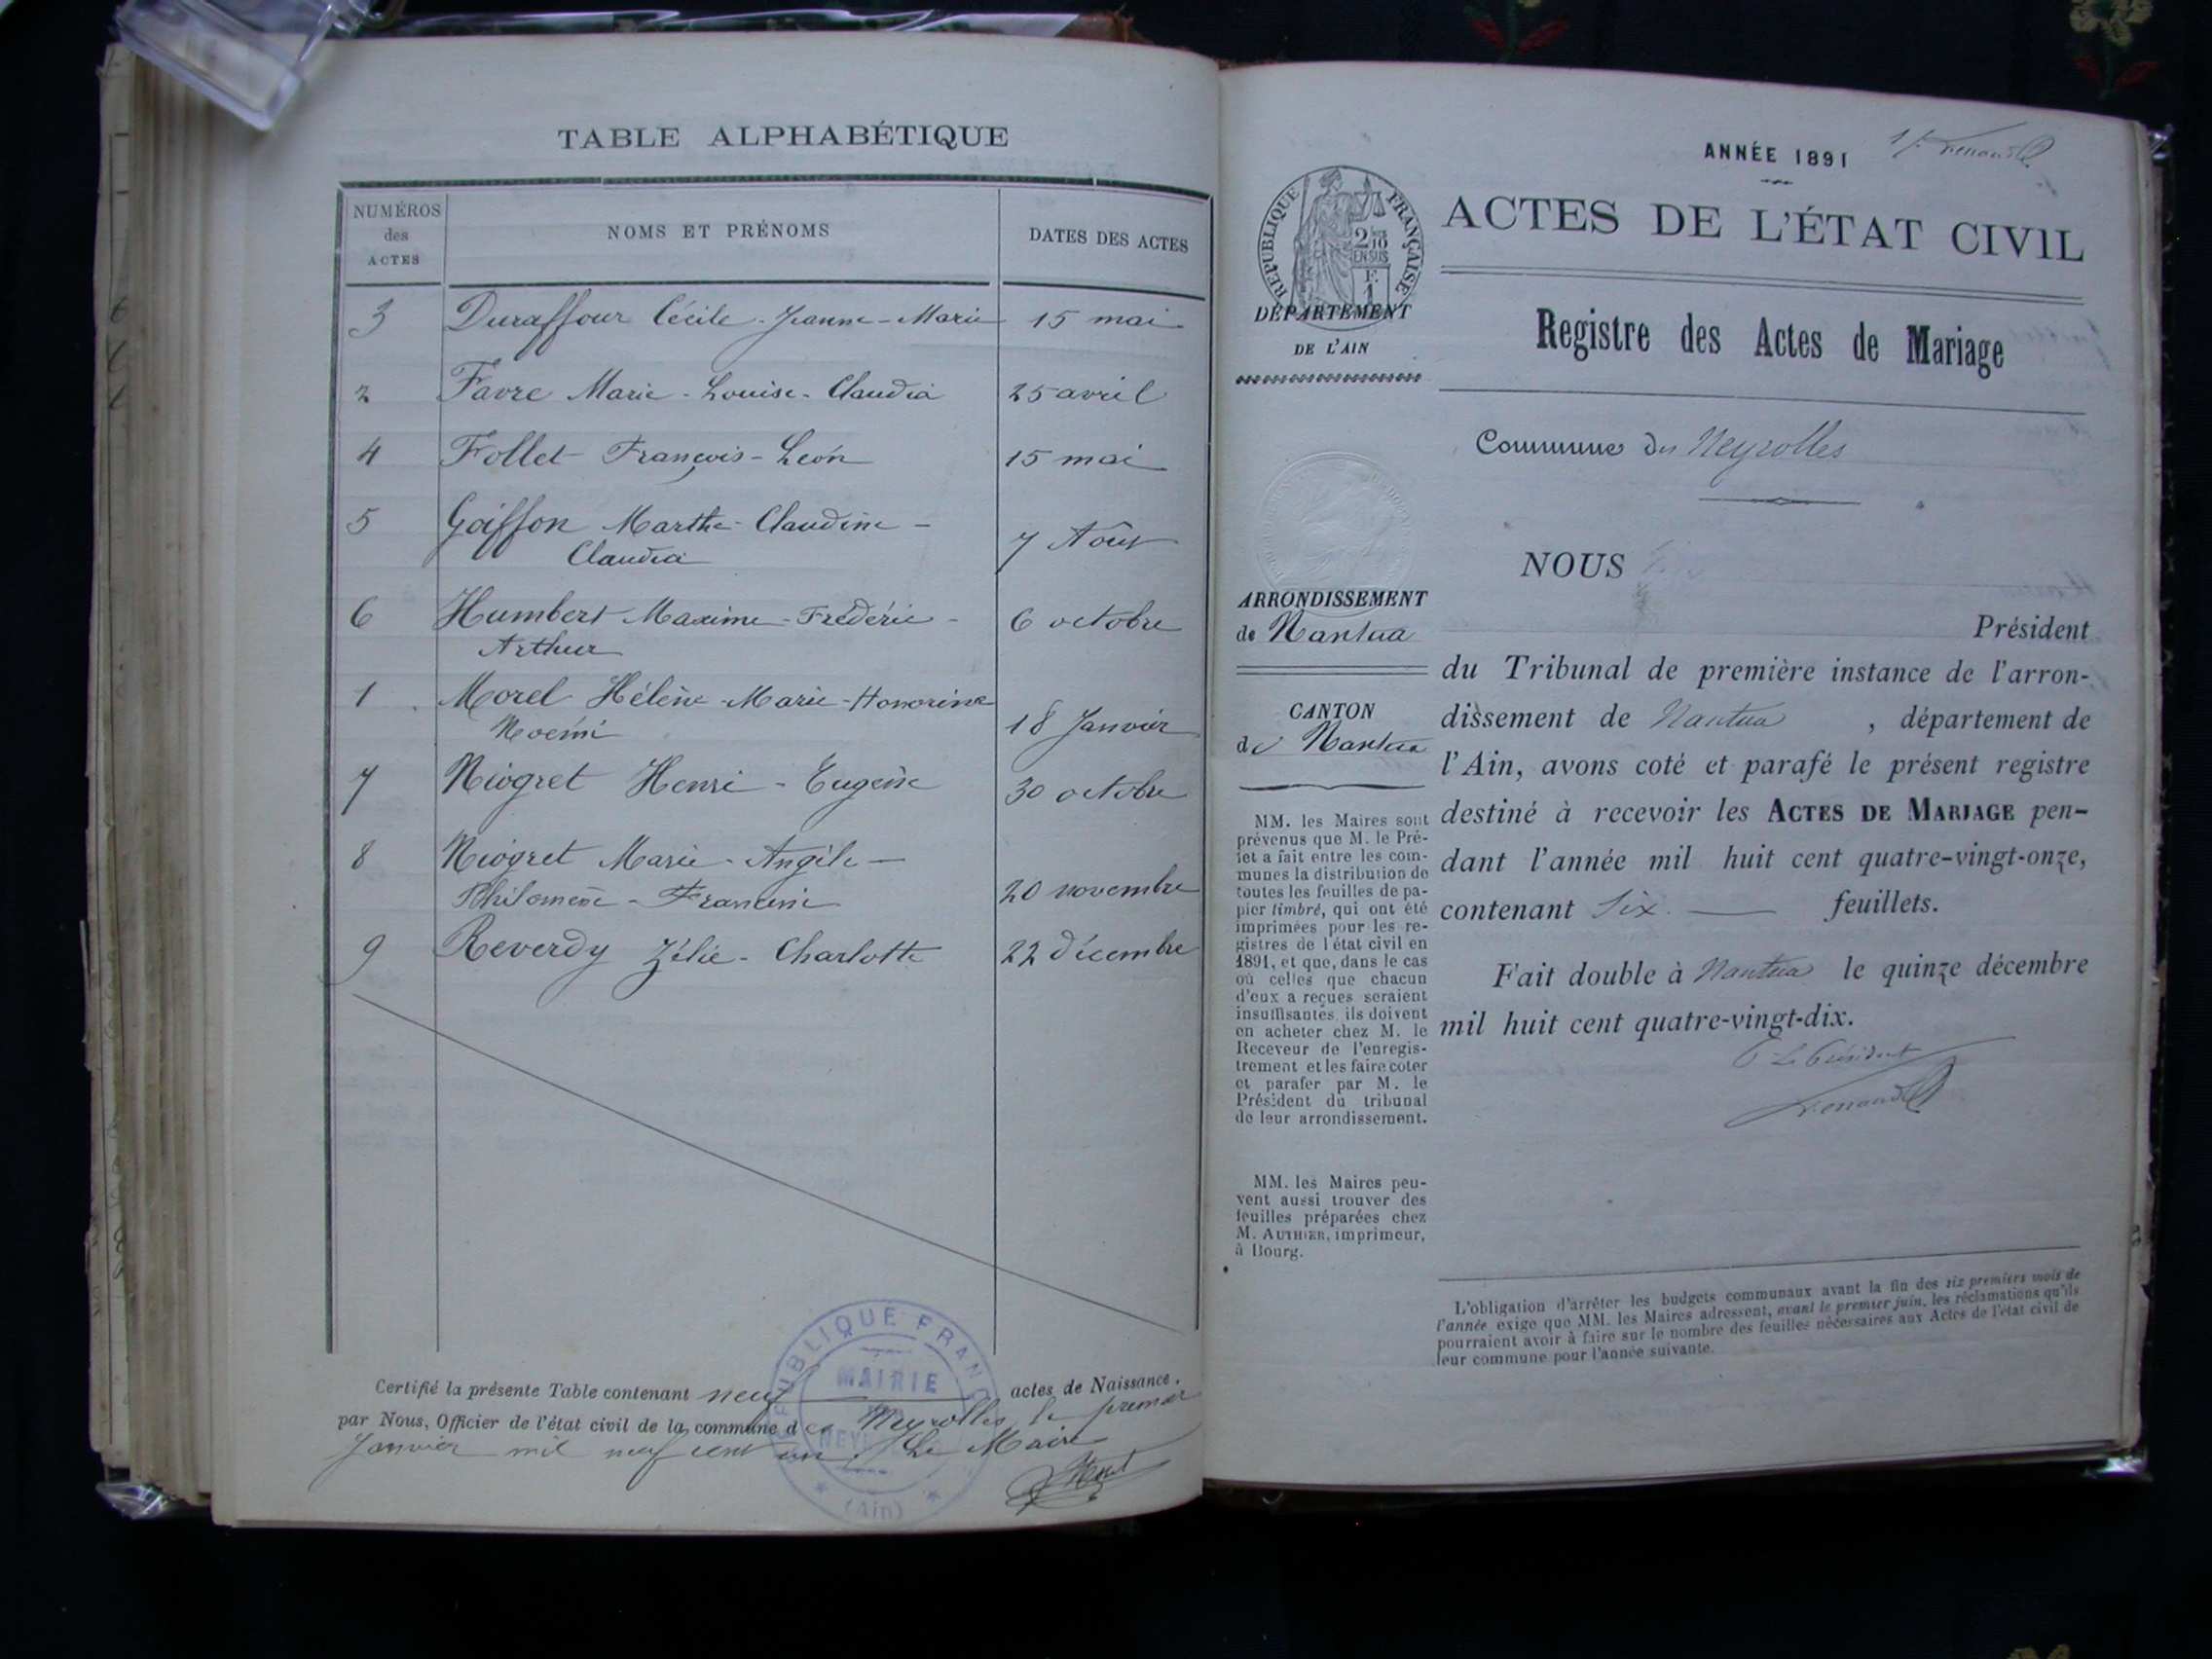 TABLE ALPHABÉTIQUE
NUMÉROS
des
ACTES
NOMS ET PRÉNOMS
DATES DES ACTES
3 Duraffour Cécile-Jeanne-Marie 15 mai
2 Favre Marie-Louise-Claudia 25 avril
4 Follet François-Léon 15 mai
5 Goiffon Marthe-Claudine-
Claudia 7 Août
6 Humbert Maxime-Frédéric- 6 octobre
Arthur
1 Morel Hélène-Marie-Honorine
Noémi 18 Janvier
7 Niogret Henri-Eugène 30 octobre
8 Niogret Marie-Angèle-
Philomène-Francine 20 novembre
9 Reverdy Zélie-Charlotte 22 décembre
Certifié la présente Table contenant neuf actes de Naissance.
par Nous, Officier de l'état civil de la commune des Neyrolles, le premier
Janvier mil neuf cent un. Le Maire
Morel
RÉPUBLIQUE FRANÇ
MAIRIE
(Ain)
ANNÉE 1891
ACTES DE L'ÉTAT CIVIL
RÉPUBLIQUE FRANÇAISE
2/10
EN SUS
F
1
DÉPARTEMENT
DE L'AIN
Registre des Actes de Mariage
Commune des Neyrolles
NOUS
Président
ARRONDISSEMENT
de Nantua
CANTON
de Nantua
du Tribunal de première instance de l'arron-
dissement de Nantua , département de
l'Ain, avons coté et parafé le présent registre
destiné à recevoir les ACTES DE MARIAGE pen-
dant l'année mil huit cent quatre-vingt-onze,
contenant Six feuillets.
Fait double à Nantua le quinze décembre
mil huit cent quatre-vingt-dix.
Le Président
MM. les Maires sont
prévenus que M. le Pré-
fet a fait entre les com-
munes la distribution de
toutes les feuilles de pa-
pier timbré, qui ont été
imprimées pour les re-
gistres de l'état civil en
1891, et que, dans le cas
où celles que chacun
d'eux a reçues seraient
insuffisantes, ils doivent
en acheter chez M. le
Receveur de l'enregis-
trement et les faire coter
et parafer par M. le
Président du tribunal
de leur arrondissement.
MM. les Maires peu-
vent aussi trouver des
feuilles préparées chez
M. AUTHIER, imprimeur,
à Bourg.
L'obligation d'arrêter les budgets communaux avant la fin des six premiers mois de
l'année exige que MM. les Maires adressent, avant le premier juin, les réclamations qu'ils
pourraient avoir à faire sur le nombre des feuilles nécessaires aux Actes de l'état civil de
leur commune pour l'année suivante.